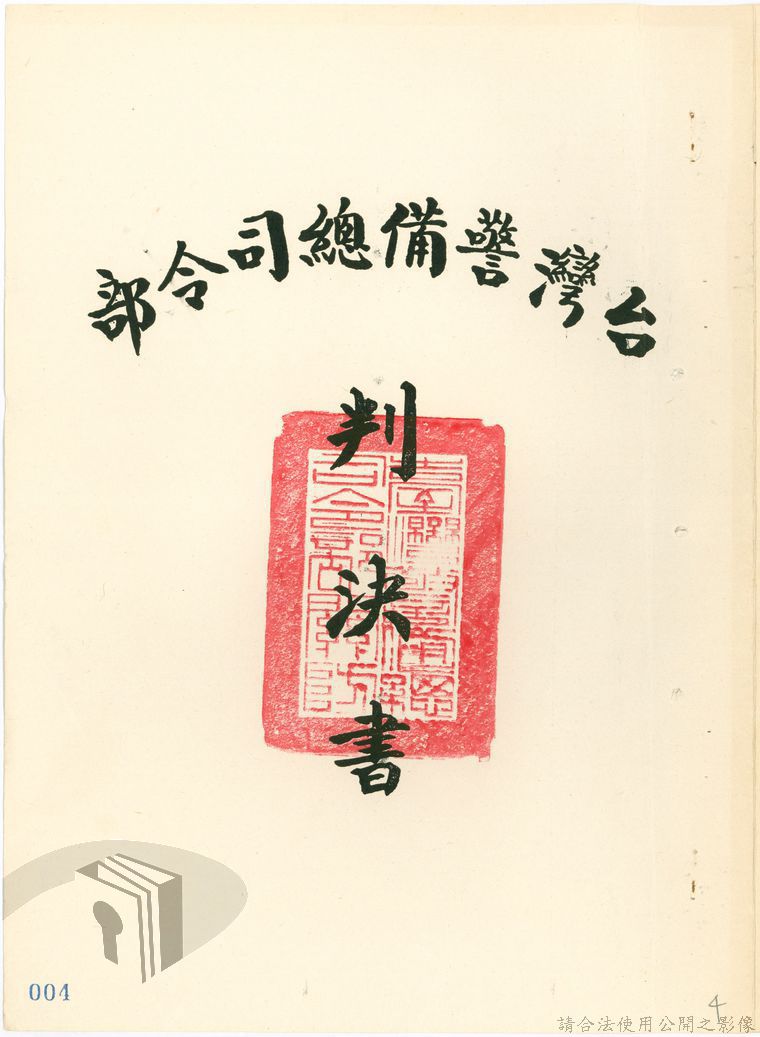 台灣警備總司令部
判決書
004
4
請合法使用公開之影像